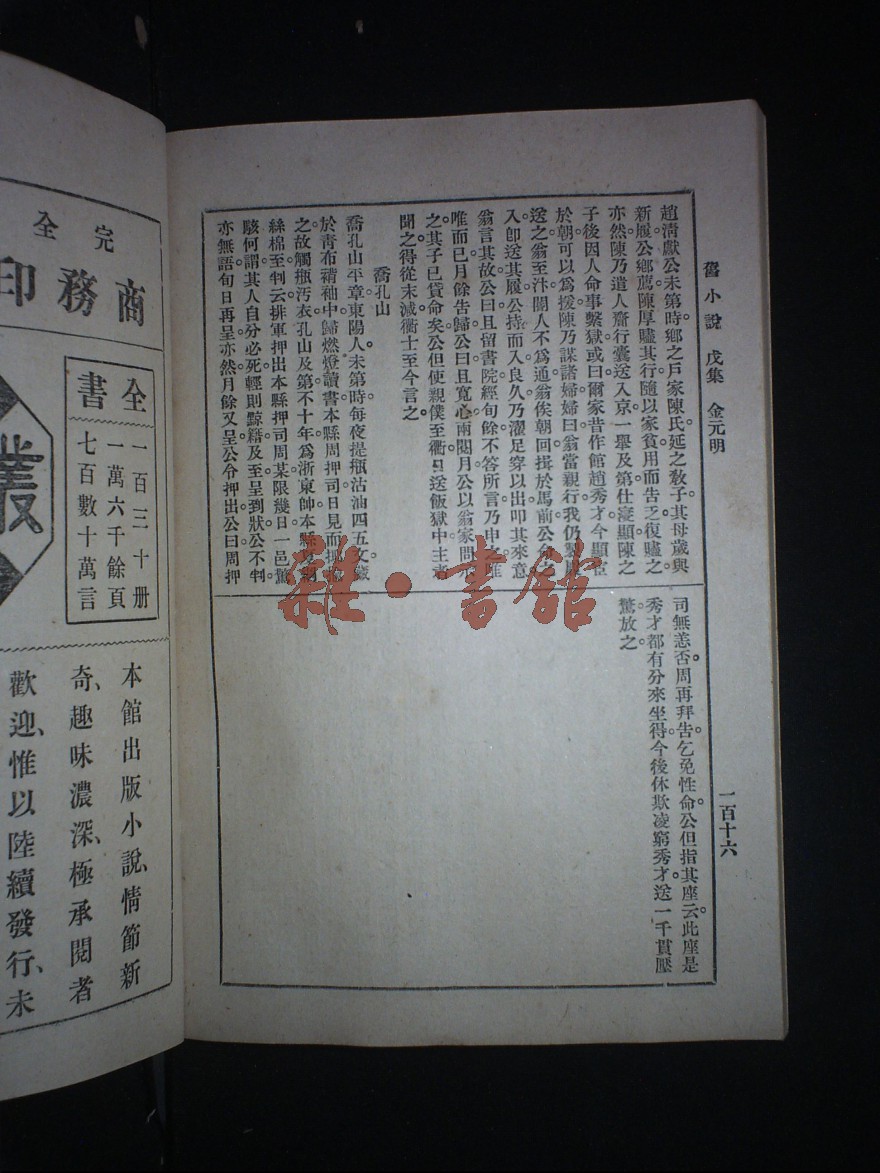 舊小說　戊集　金元明
一百十六
趙淸獻公未第時。鄉之戶家陳氏延之敎子。其母歲與
新履。公鄉薦。陳厚贐其行。隨以家貧用而告乏。復贐之。
亦然。陳乃遣人齎行囊送入京。一舉及第。仕寖顯。陳之
子後因人命事繫獄。或曰。爾家昔作館趙秀才。今顯宦
於朝。可以爲援。陳乃謀諸婦。婦曰。翁當親行。我仍
送之。翁至汴。閽人不爲通。翁俟朝回。揖於馬前。公命之
入。卽送其履。公持而入。良久。乃濯足穿以出。叩其來意。
翁言其故。公曰。且留書院。經旬餘。不答所言。乃申之。唯
唯而已。月餘吿歸。公曰。且寬心。兩閱月。公以翁家問示
之。其子已貸命矣。公但使親僕至衢。日送飯獄中。主者
聞之。得從末減。衢士至今言之。
喬孔山
喬孔山平章。東陽人。未第時。每夜提甁沽油四五文。藏
於靑布褙袖中歸。燃燈讀書。本縣周押司日見而
之。故觸甁汚衣。孔山及第。不十年。爲浙東帥。本縣
絲棉至。判云。排軍押出本縣押司周某。限幾日。一邑驚
駭。何謂。其人自分必死。輕則黥籍。及至。呈到狀。公不判
亦無語。旬日再呈。亦然。月餘又呈。公令押出。公曰。周押
司無恙否。周再拜吿。乞免性命。公但指其座云。此座是
秀才都有分來坐得。今後休欺凌窮秀才。送一千貫壓
驚放之。
雜·書館
完全
商務印
全書
一百三十册
一萬六千餘頁
七百數十萬言
叢
本館出版小說、情節新
奇、趣味濃深、極承閱者
歡迎、惟以陸續發行、未